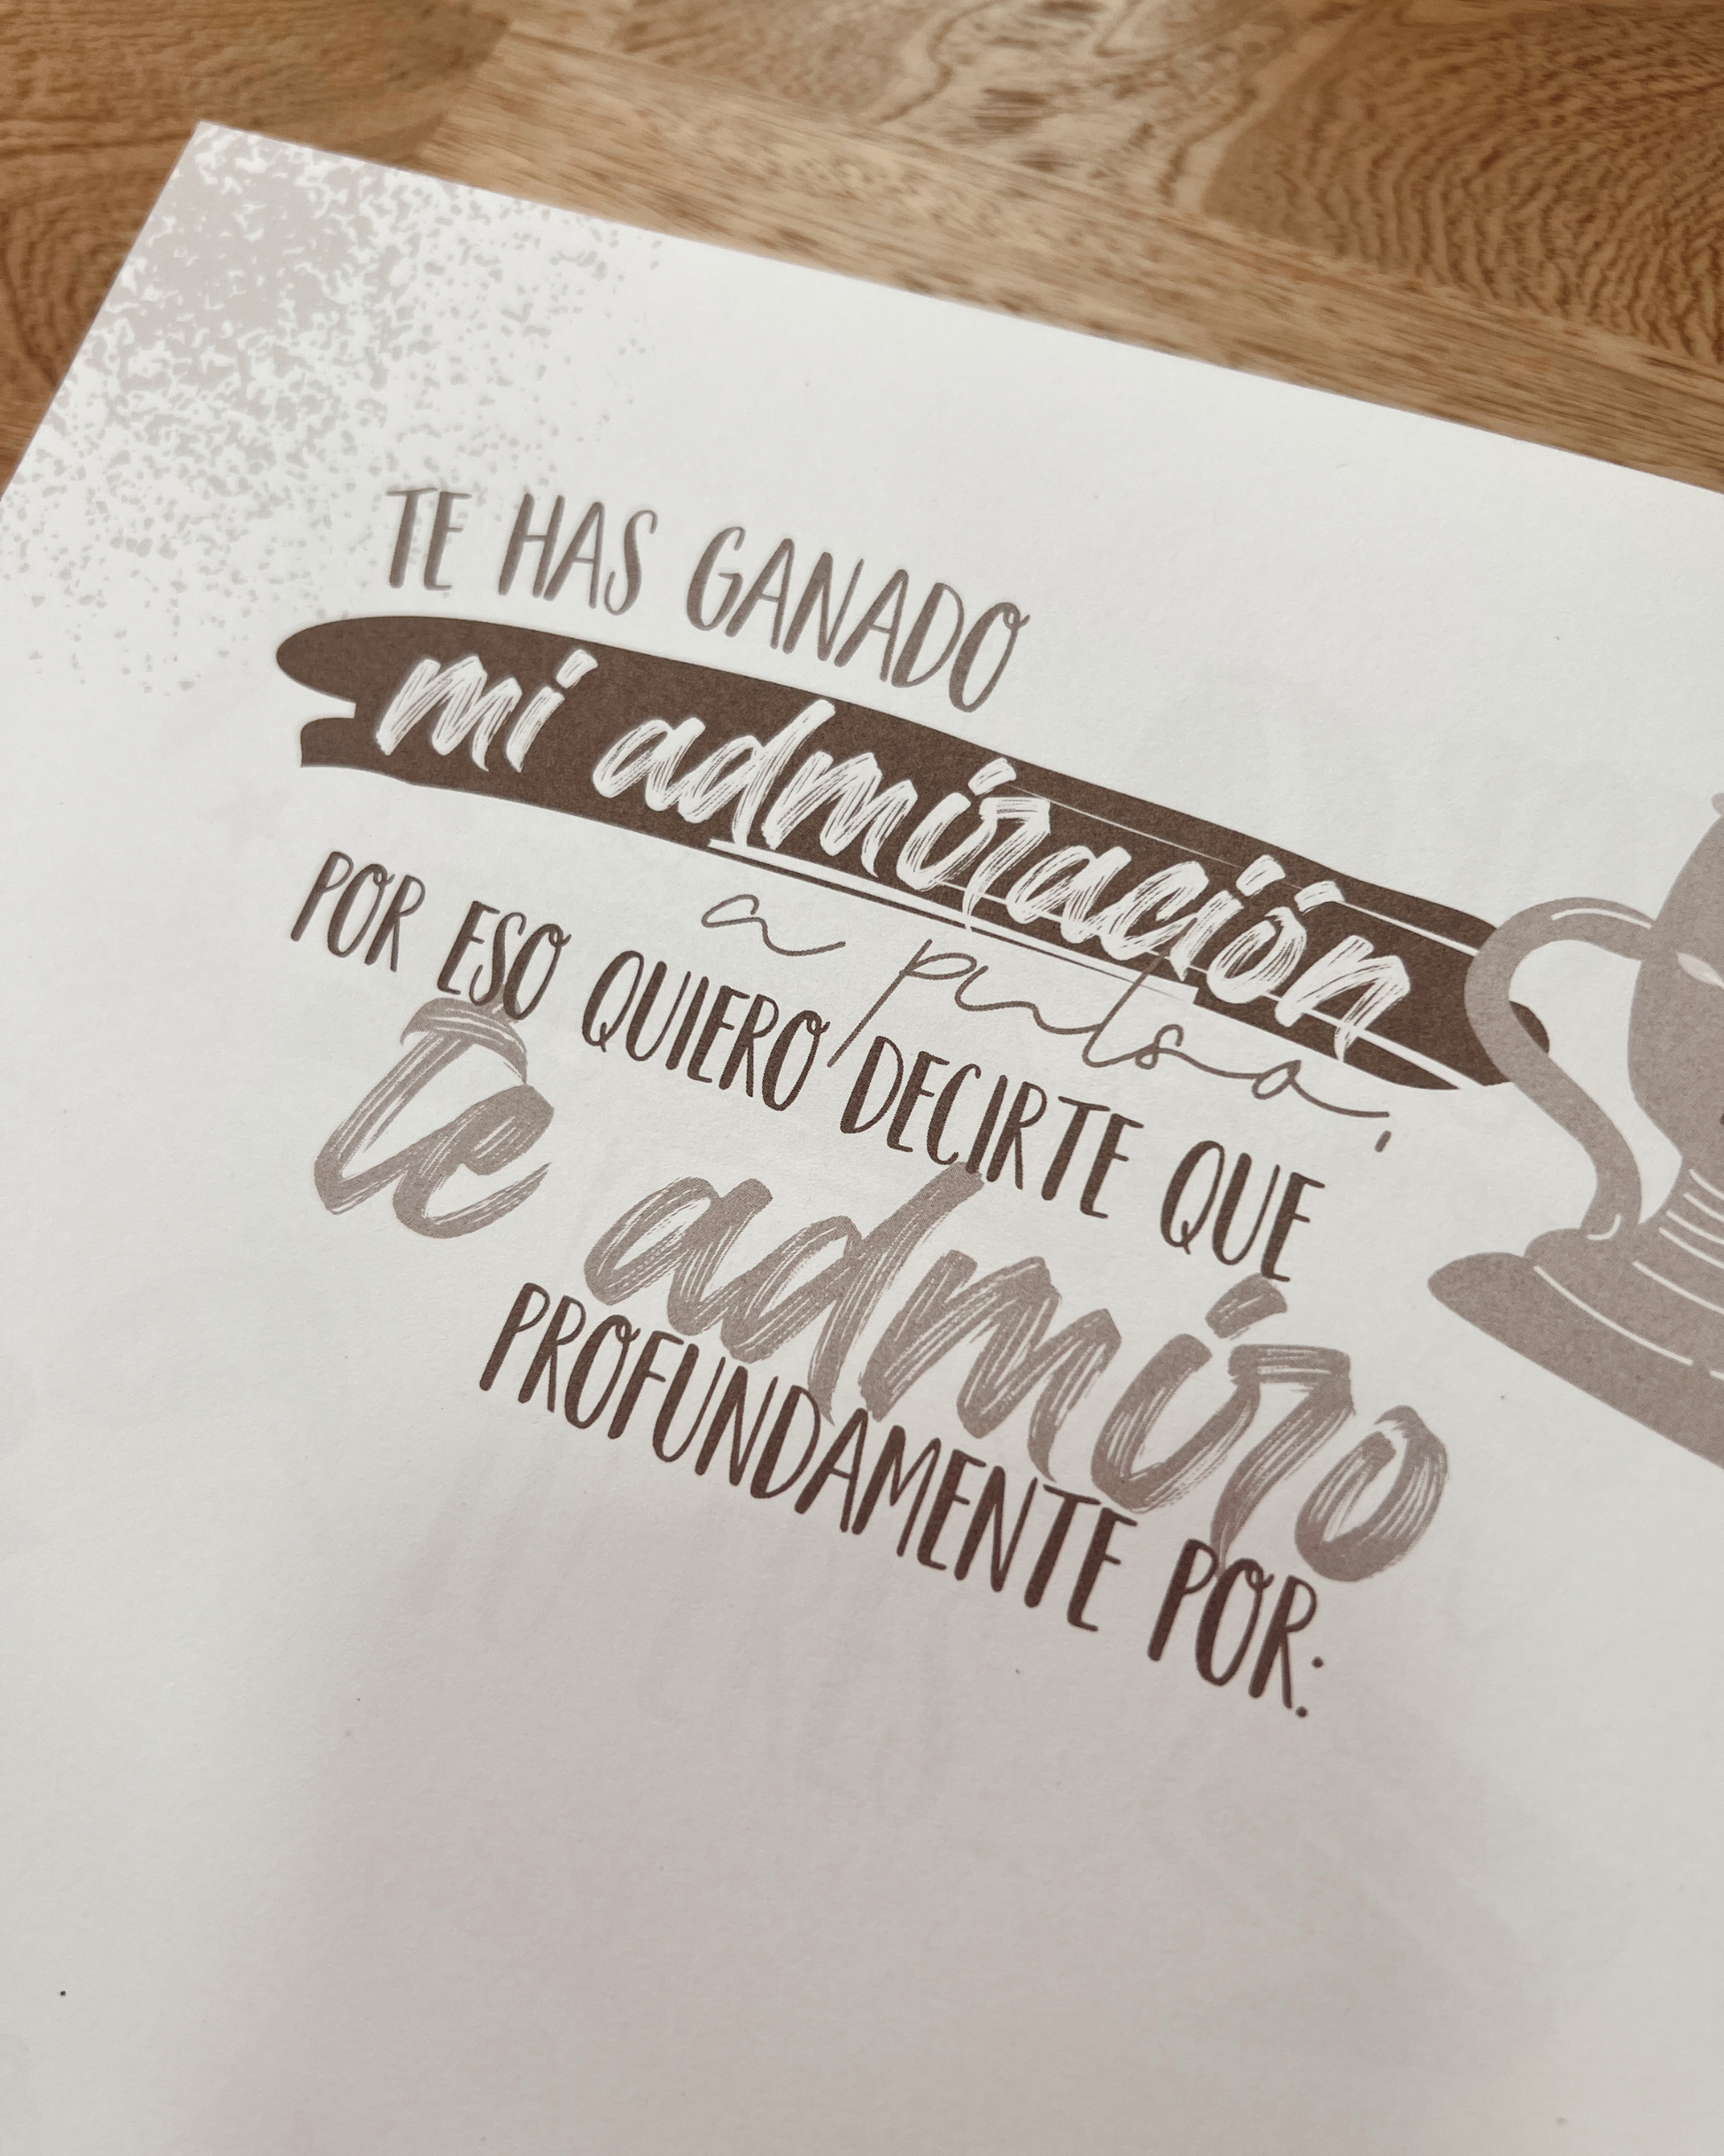 TE HAS GANADO
mi admiración
a pulso,
POR ESO QUIERO DECIRTE QUE
te admiro
PROFUNDAMENTE POR: